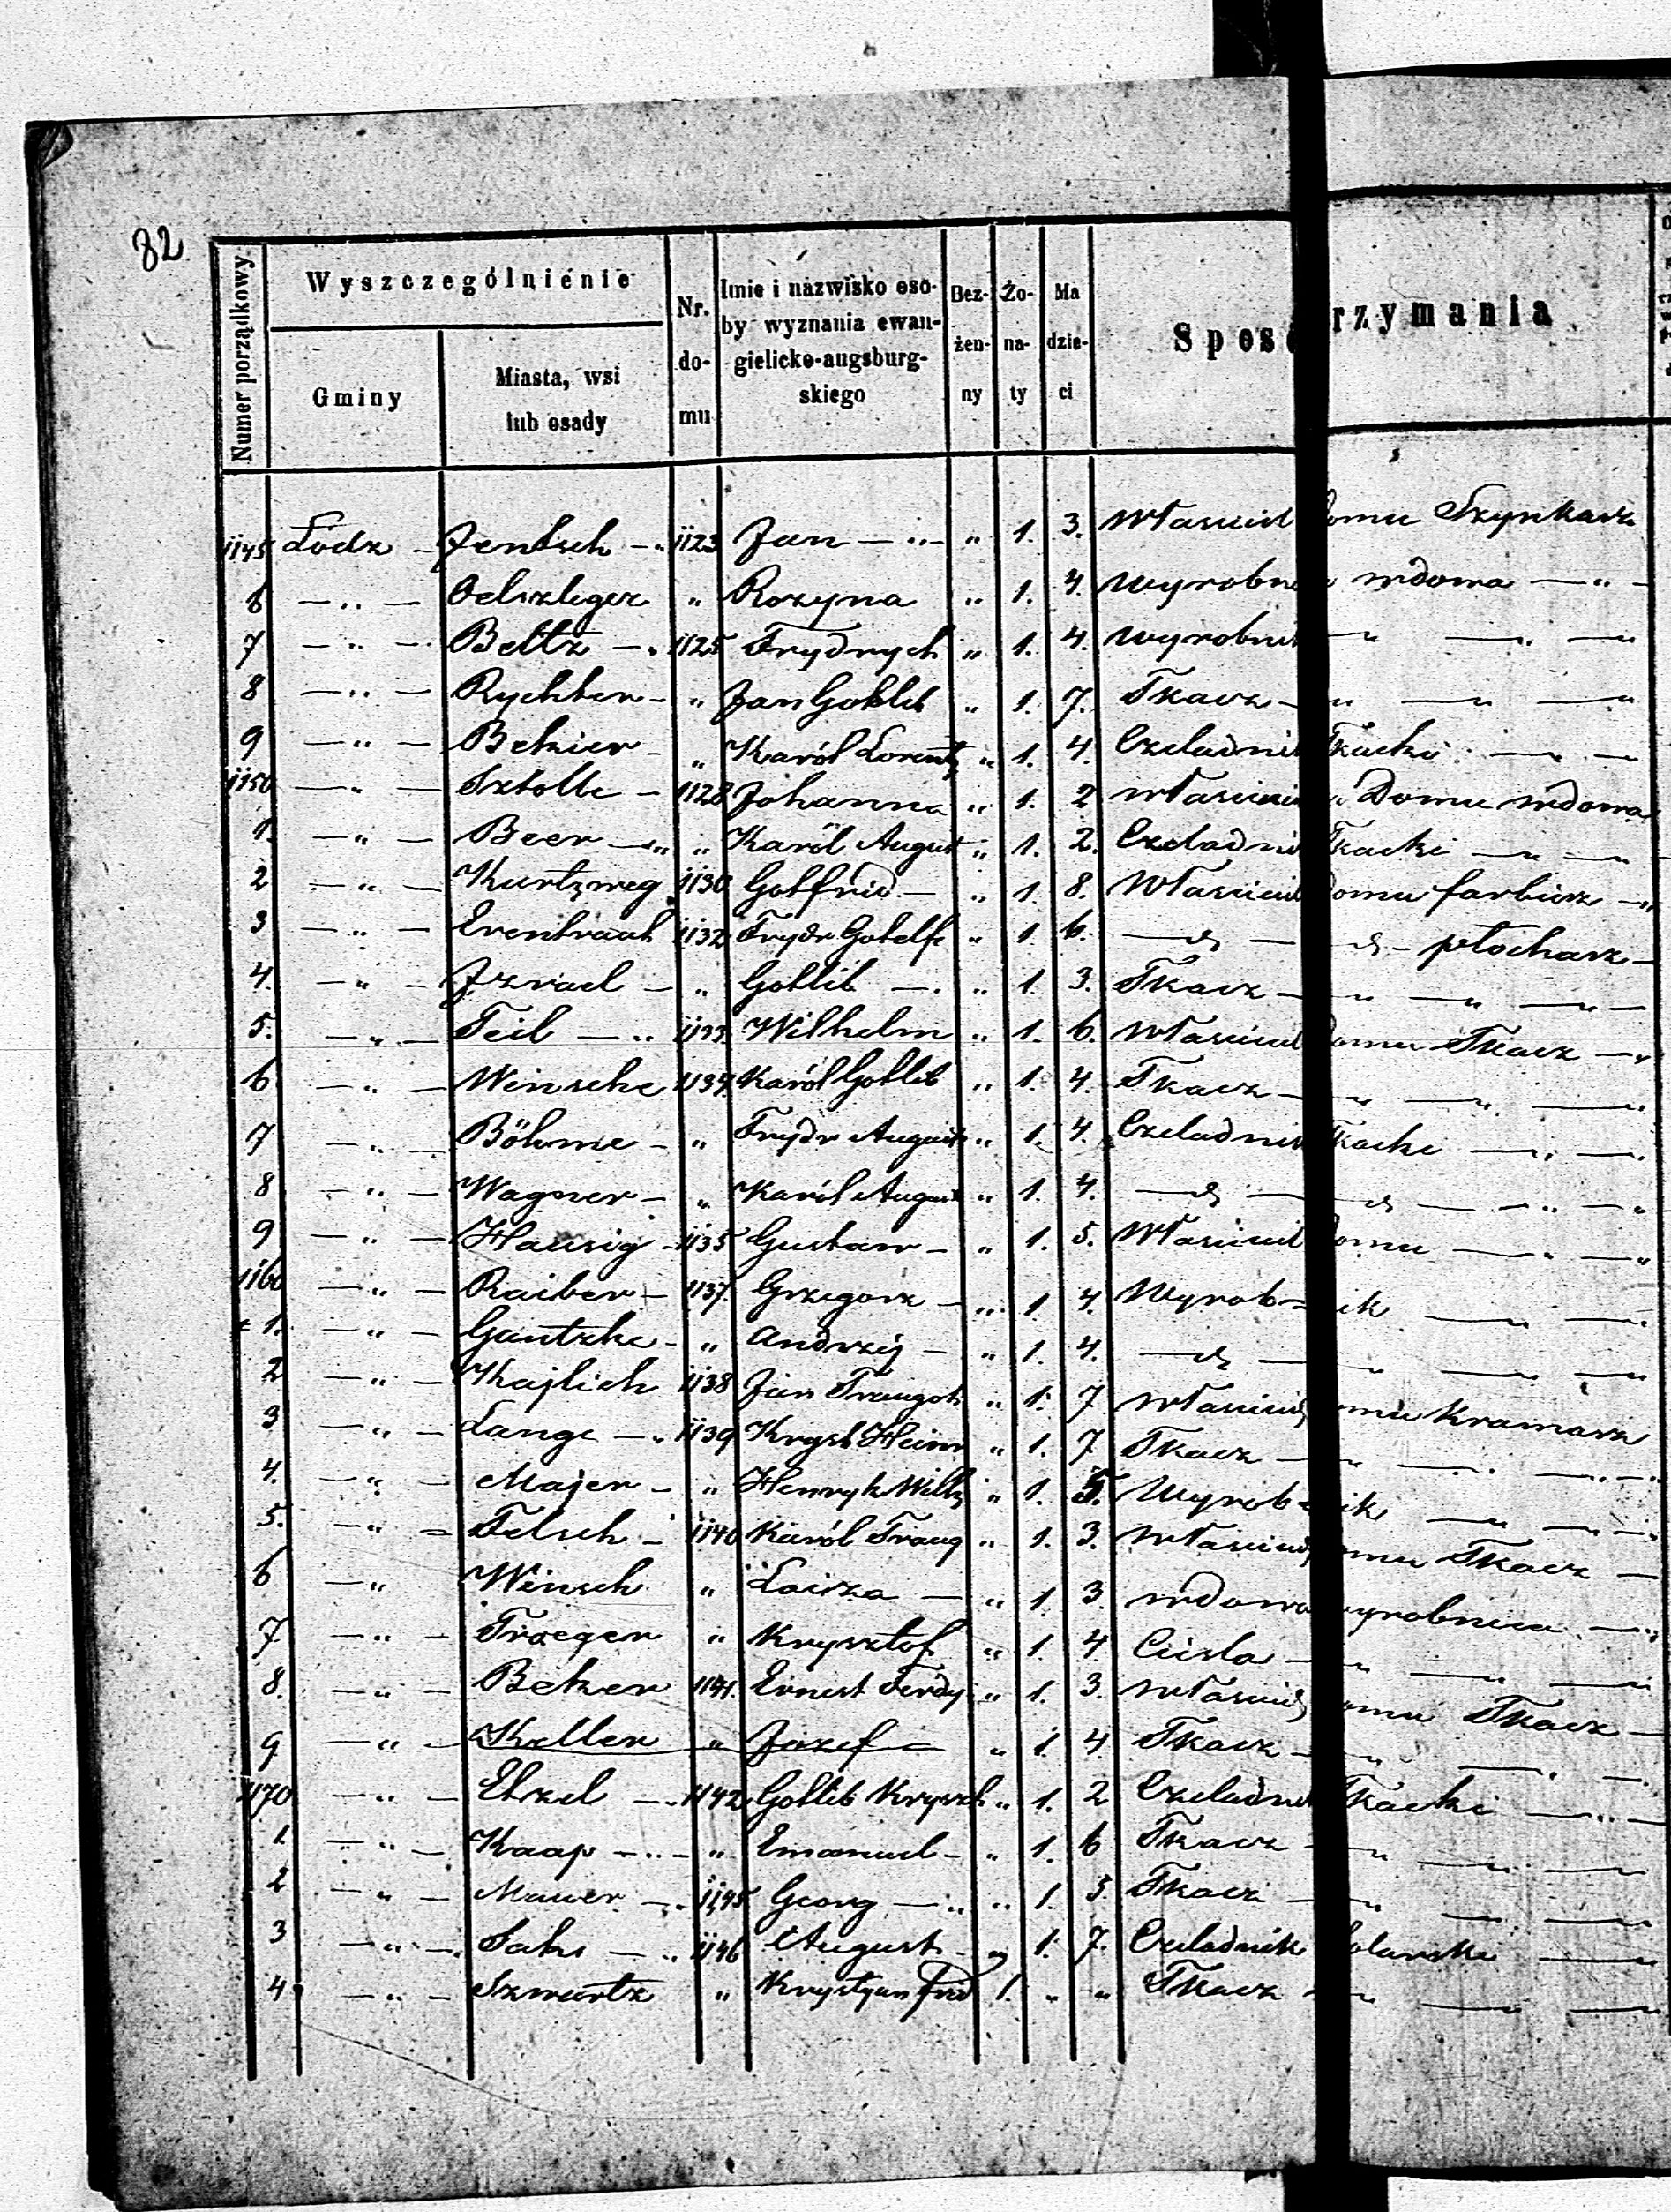 82.
Numer porządkowy
Wyszczególnienie
Gminy
Miasta, wsi lub osady
Nr. do- mu
Imie i nazwisko oso- by wyznania ewan- gielicko-augsburg- skiego
Bez- żen- ny
Żo- na- ty
Ma dzie- ci
Sposó rzymania
1145 Łódz — Jentsch — „ 1123 Jan — „ — „ 1. 3. Właściciel Domu Szynkarz
6 — „ — Oelszleger „ Rozyna „ 1. 4. Wyrobni a wdowa — „ —
7 — „ — Beltz — „ 1125 Frydrych „ 1. 4. Wyrobnik — „ — „ —
8 — „ — Rychter — „ Jan Gottlib „ 1. 7. Tkacz — „ — „ — „ —
9 — „ — Bekier — „ Karól Lorentz „ 1. 4. Czeladnik Tkacki — „ —
1150 — „ — Sztolle — 1128 Johanna „ 1. 2 Właścici a Domu wdowa
1. — „ — Beer — „ „ Karól August „ 1. 2. Czeladni Tkacki — „ — „ —
2 — „ — Kurtzweg 1130 Gotfrid — „ 1. 8. Właścicil Domu farbierz — „
3 — „ — Erentraut 1132 Frydr Gotolf „ 1. 6. — d — d — płocharz —
4. — „ — Izrael — „ Gottlib — „ „ 1. 3. Tkacz — „ — „ — „ —
5. — „ — Teil — „ 1133. Wilhelm „ 1. 6. Właścicil Domu Tkacz — „
6 — „ — Winsche 1134. Karól Gottlib „ 1. 4. Tkacz — „ — „ — „ —
7 „ — Böhme — „ Frydr August „ 1. 4. Czeladnik Tkacki — „ — „
8 — „ — Wagner — „ Karól August „ 1. 4. — d — d — „ — „
9 — „ — Hausig — 1135 Gustaw — „ 1. 5. Właścicil Domu — „ — „
1160 — „ — Raiber — 1137. Grzegorz — „ 1. 4. Wyrob= ik — „ — „ —
1. — „ — Gantzke — „ Andrzij — „ 1. 4. — d — „ — „ — „ —
2 — „ — Kajlich 1138 Jan Traugot „ 1. 7 Właścici omu Kramarz
3 — „ — Lange — „ 1139 Kryst Heinr „ 1. 7 Tkacz — „ — „ — „ —
4. — „ — Majer — „ Henryk Wilh „ 1. 5. Wyrob= ik — „ — „ —
5. — „ — Felsch — 1140 Karól Traug „ 1. 3. Właścici omu Tkacz —
6 — „ Winsch „ Loiza — „ 1. 3. wdowa yrobnica — „
7 — „ — Troeger „ Krysztof „ 1. 4. Cieśla — „ — „ — „ —
8. — „ — Beker 1141. Ernest Ferdy „ 1. 3. Właścici omu Tkacz —
9 — „ — Keller — „ Józef — „ 1. 4. Tkacz — „ — „ — „
1170 — „ — Etzel — „ 1142 Gottlib Krysch „ 1. 2 Czeladnik Tkacki — „ —
1 — „ — Kaap — „ — „ Emanuel — „ 1. 6 Tkacz — „ — „ — „ —
2 — „ — Mauer — „ 1145 Georg — „ „ 1. 3 Tkacz — „ — „ — „ —
3 — „ — Saks — „ 1146 August — „ 1. 7. Czeladnik olarski — „
4. — „ — Szwartz „ Krystyan Frid 1. „ „ Tkacz — „ — „ — „ —